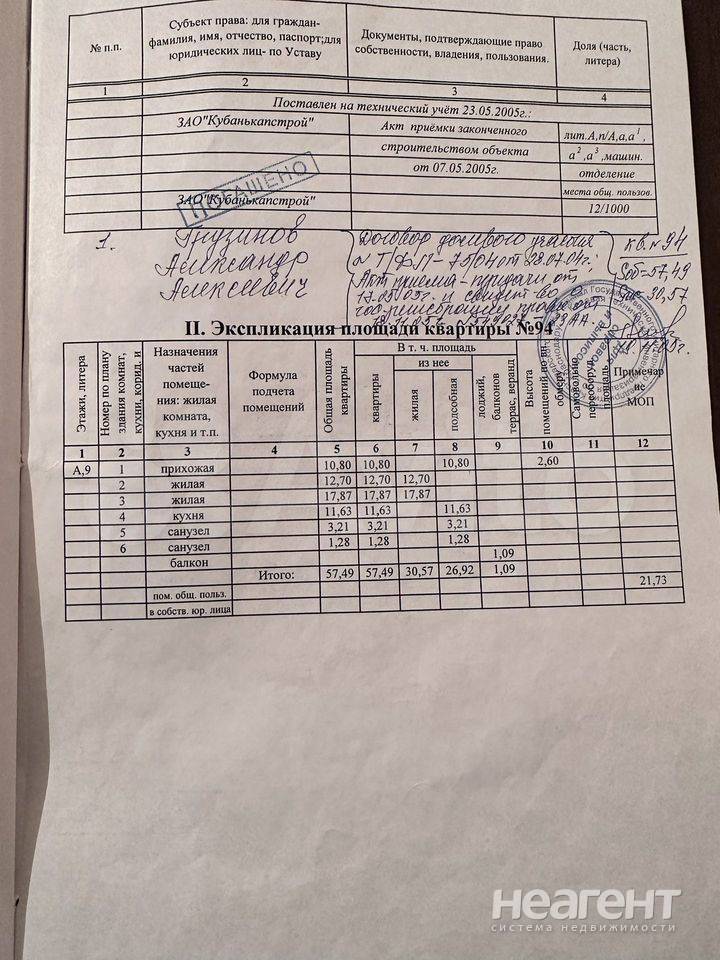 № п.п.
Субъект права: для граждан-
фамилия, имя, отчество, паспорт;для
юридических лиц- по Уставу
Документы, подтверждающие право
собственности, владения, пользования.
Доля (часть,
литера)
1 2 3 4
Поставлен на технический учёт 23.05.2005г.:
ЗАО"Кубанькапстрой"
Акт приёмки законченного
строительством объекта
от 07.05.2005г.
лит.А,п/А,а,а¹,
а²,а³,машин.
отделение
места общ. пользов.
12/1000
ПОГАШЕНО
ЗАО"Кубанькапстрой"
1. Грузинов
Александр
Алексеевич
Договор долевого участия
от 28.07.04г.
Акт приема-передачи от
кв. №94
Sоб-57,49
30,57
II. Экспликация площади квартиры №94
Этажи, литера
Номер по плану
здания комнат,
кухни, корид. и
Назначения
частей
помеще-
ния: жилая
комната,
кухня и т.п.
Формула
подчета
помещений
Общая площадь
квартиры
В т. ч. площадь
квартиры
из нее
жилая
подсобная
лоджий,
балконов
террас, веранд
Высота
помещений по вн.
обмеру
Самовольно
переоборуд.
площадь
Примечан
ие
МОП
1 2 3 4 5 6 7 8 9 10 11 12
А,9 1 прихожая 10,80 10,80 10,80 2,60
2 жилая 12,70 12,70 12,70
3 жилая 17,87 17,87 17,87
4 кухня 11,63 11,63 11,63
5 санузел 3,21 3,21 3,21
6 санузел 1,28 1,28 1,28
балкон 1,09
Итого: 57,49 57,49 30,57 26,92 1,09
21,73
пом. общ. польз.
в собств. юр. лица
НЕАГЕНТ
система недвижимости